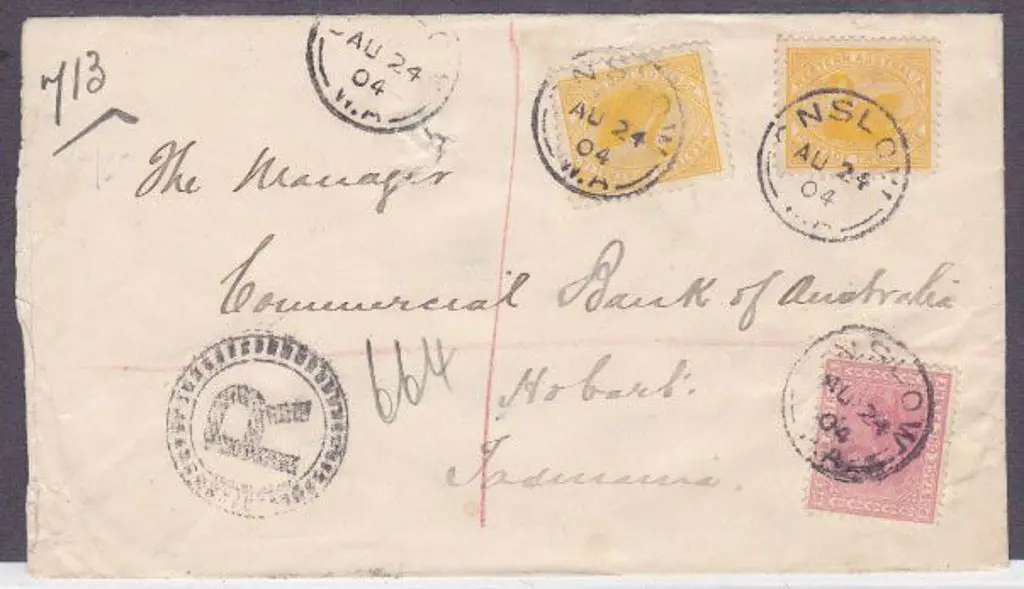 713
AU 24
04
W.A
ONSLOW
AU 24
04
W.A
ONSLOW
AU 24
04
The Manager
Commercial Bank of Australia
664
Hobart.
Tasmania.
R
ONSLOW
AU 24
04